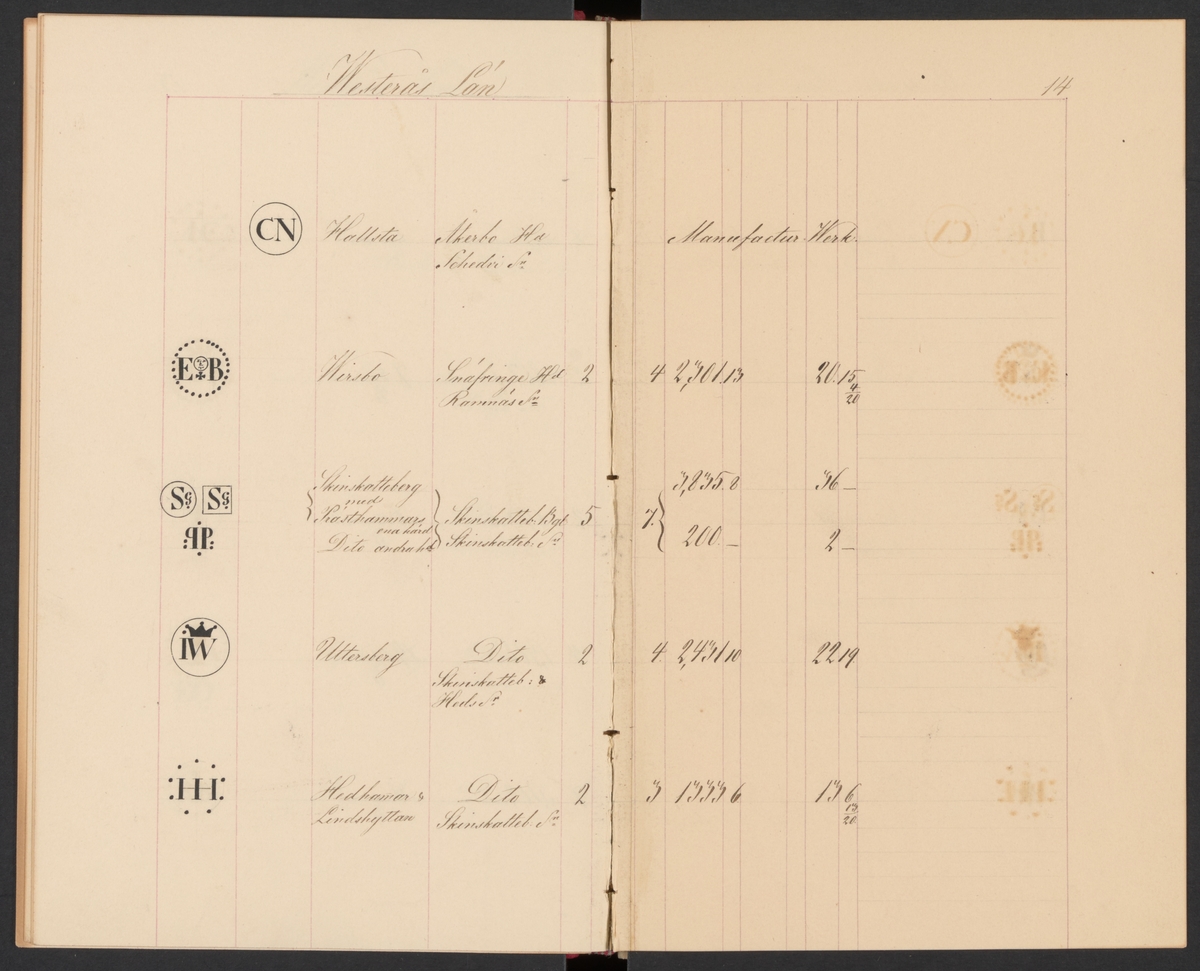 Westerås Län
14
CN Hallsta Åkerbo Hd Manufactur Werk.
Schedvi Sn
E B Wirsbo Snäfringe Hd 2 4 2,301.13 20.15
Ramnäs Sn 4/20
Skinskatteberg 3,835.8 36 —
med
Sg Sg Prästhammars Skinskatteb. Bgl 5 7.
ena härd
PP Dito andra hd Skinskatteb. Sn 200 — 2 —
IW Uttersberg Dito 2 4. 2,431 10 22 19
Skinskatteb: &
Heds Sn
HH Hedhamar & Dito 2 3 1333 6 13 6
Lindshyttan Skinskatteb. Sn 13/20